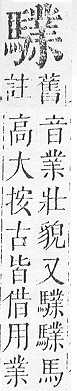 驜
舊音業壯貌又驜驜馬
註高大按古皆借用業